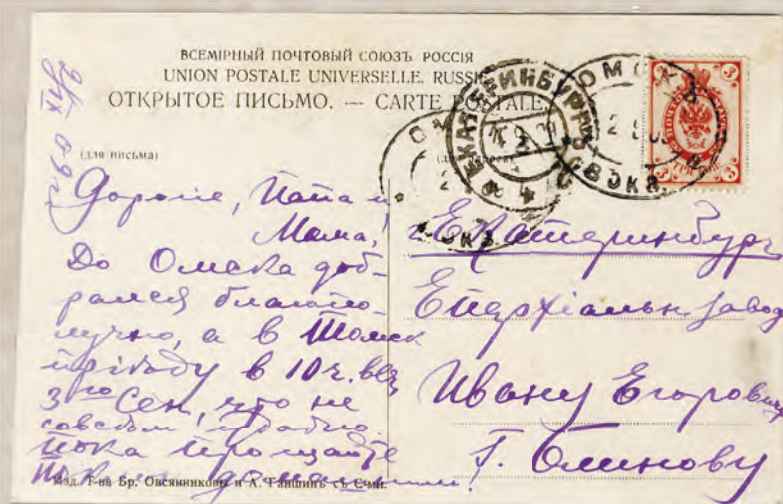 ВСЕМІРНЫЙ ПОЧТОВЫЙ СОЮЗЪ РОССІЯ
UNION POSTALE UNIVERSELLE. RUSSIE
ОТКРЫТОЕ ПИСЬМО. — CARTE POSTALE.
(для письма)
ЕКАТЕРИНБУРГЪ
ОМСКЪ
ВОКЗ.
3 3
3 3
Дорогіе, Папа и
Мама!
До Омска доб-
рался благопо-
лучно, а в Томск
пріѣду в 10 ч. веч
3го Сен, что не
совсем удобно.
Пока прощайте
Екатеринбург
Епархіальн завод
Ивану Егорович
Г. Олинову
Изд. Т-ва Бр. Овсянниковы и А. Ганшинъ съ С-ми.